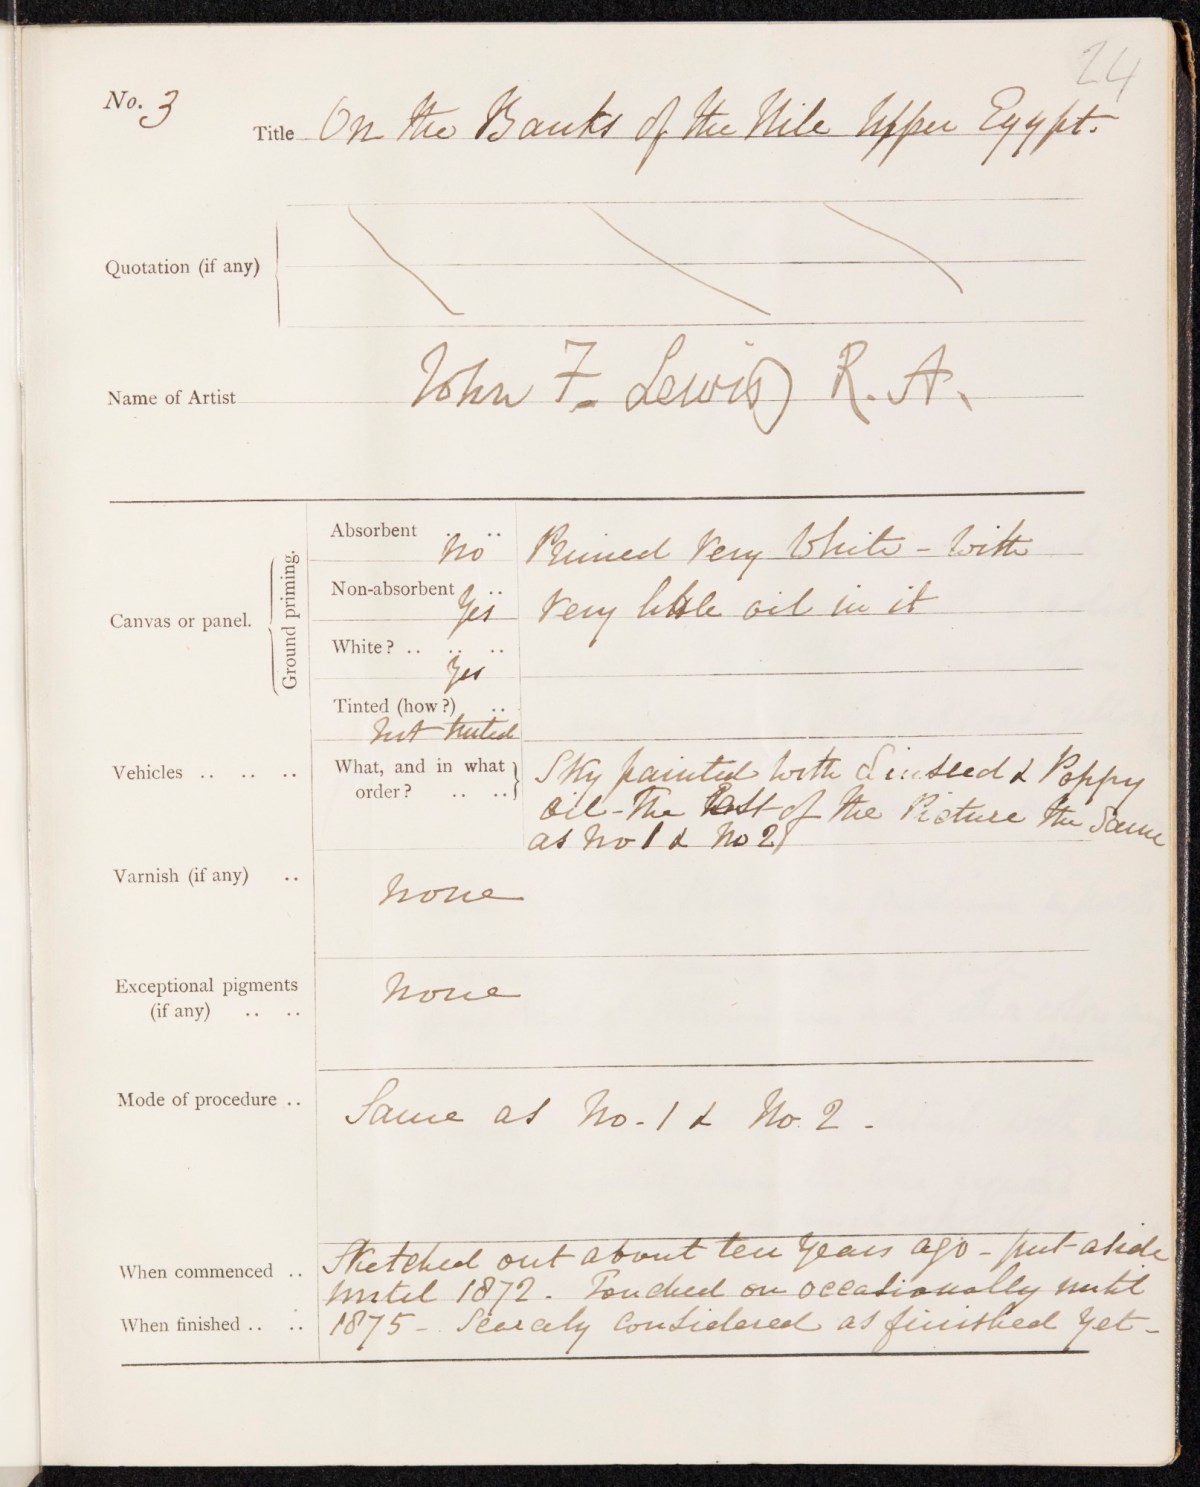 24
No. 3
Title On the Banks of the Nile Upper Egypt.
Quotation (if any)
Name of Artist John F. Lewis R. A.
Canvas or panel.
Ground priming.
Absorbent .. .. No Primed very White – with
Non-absorbent .. Yes very little oil in it
White? .. .. .. Yes
Tinted (how?) .. Not tinted
Vehicles .. .. .. What, and in what order? .. .. Sky painted with Linseed & Poppy
oil – The Rest of the Picture the Same
as No 1 & No 2
Varnish (if any) .. None
Exceptional pigments (if any) .. .. None
Mode of procedure .. Same as No. 1 & No. 2 –
When commenced .. Sketched out about ten years ago – put aside
until 1872. Touched on occasionally until
When finished .. .. 1875 – Scarcely considered as finished yet –